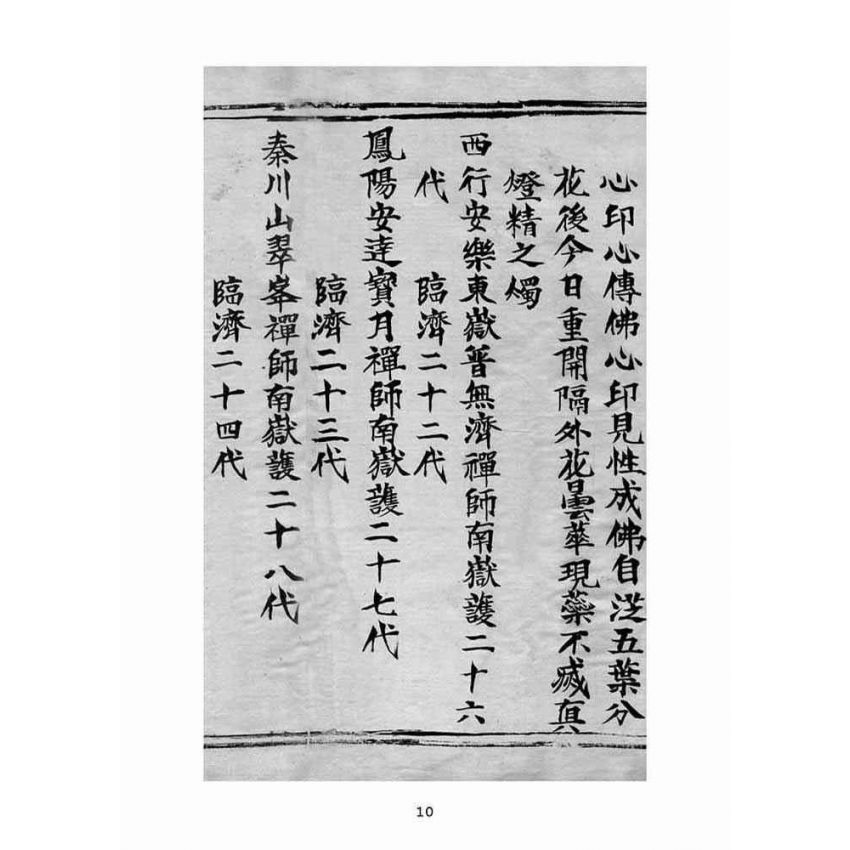 心印心傳佛心印見性成佛自從五葉分
花後今日重開隔外花曇華現蘂不滅真
燈精之燭
西行安樂東嶽普無濟禪師南嶽護二十六
代　臨濟二十二代
鳳陽安達寶月禪師南嶽護二十七代
臨濟二十三代
秦川山翠峯禪師南嶽護二十八代
臨濟二十四代
10